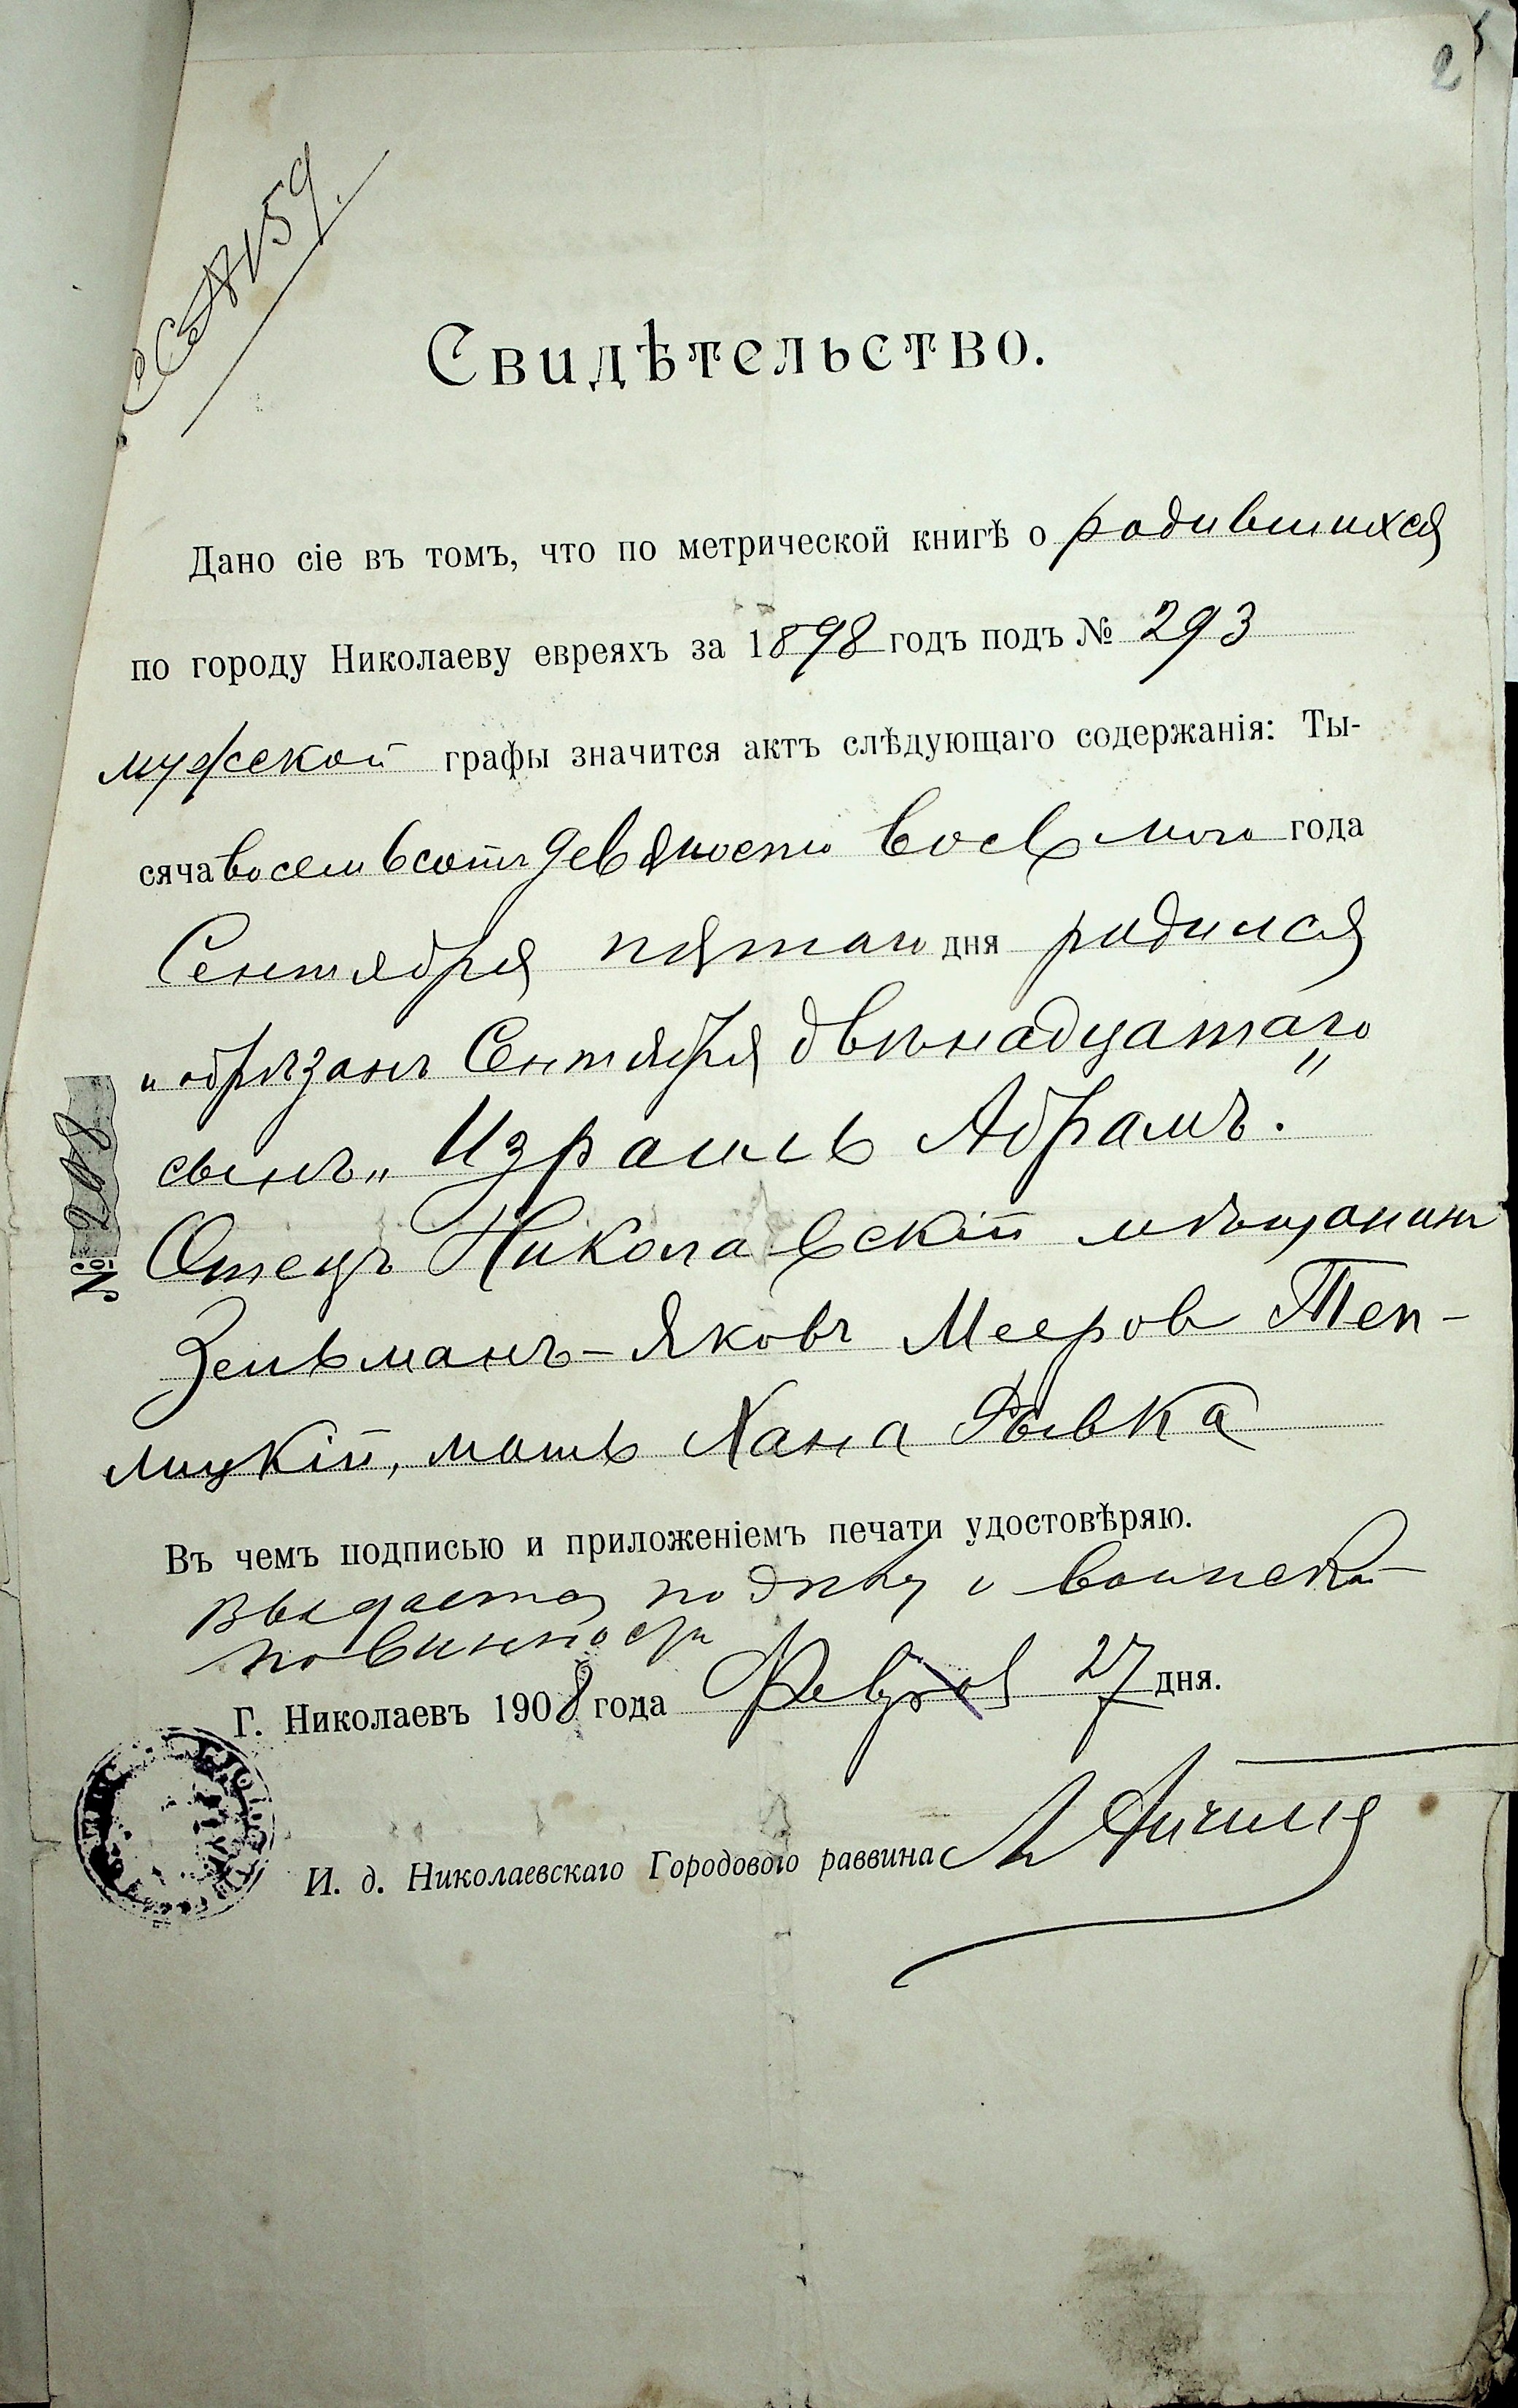 2
159.
Свидѣтельство.
Дано сіе въ томъ, что по метрической книгѣ о родившихся
по городу Николаеву евреяхъ за 1898 годъ подъ № 293
мужской графы значится актъ слѣдующаго содержанія: Ты-
сяча восемьсотъ девяносто восьмого года
Сентября пятаго дня родился
и обрѣзанъ Сентября двѣнадцатаго
сынъ „Израиль Абрамъ."
Отецъ Николаевскій мѣщанинъ
Зельманъ-Яковъ Мееров Теп-
лицкій, мать Хана Рывка
Въ чемъ подписью и приложеніемъ печати удостовѣряю.
Выдается по дѣлу о воинской
повинности
Г. Николаевъ 1908 года Февраля 27 дня.
И. д. Николаевскаго Городового раввина
№ 208